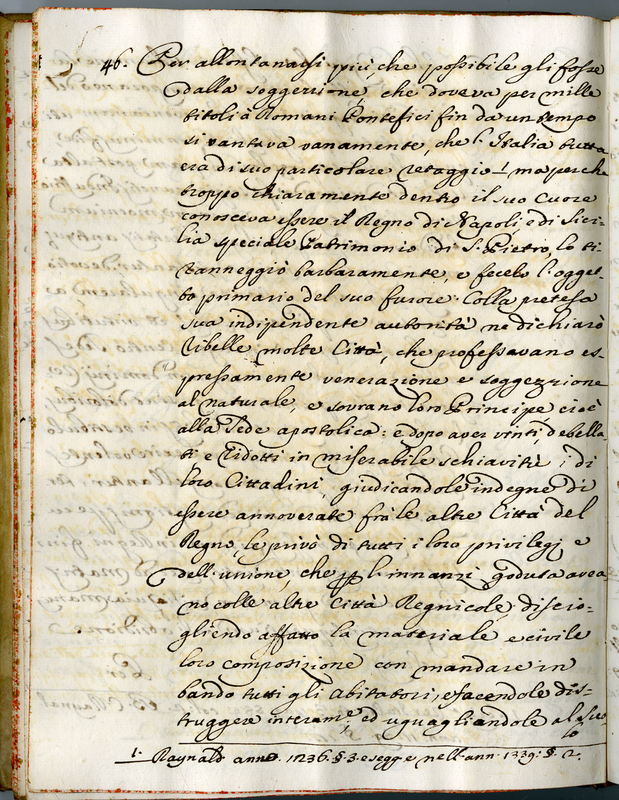 46. Per allontanarsi più, che possibile gli fosse
dalla soggezione, che doveva per mille
titoli à Romani Pontefici fin da un tempo
si vantava vanamente, che l'Italia tutta
era di suo particolare retaggio 1 ma perche
troppo chiaramente dentro il suo cuore
conosceva essere il Regno di Napoli, e di Sici-
lia speciale Patrimonio di S. Pietro, lo ti-
ranneggiò barbaramente, e fecelo l'ogget-
to primario del suo furore. Colla pretesa
sua indipendente autorità ne dichiarò
ribelle molte Città, che professavano es-
pressamente venerazione e soggezzione
al naturale, e sovrano loro Principe cioè
alla Sede apostolica: e dopo aver vinti debella-
ti e ridotti in miserabile schiavitù i di
loro Cittadini, giudicandole indegne di
essere annoverate frà le altre Città del
Regno, le privò di tutti i loro privilegj e
dell'unione, che per l'innanzi goduta avea
no colle altre Città Regnicole, discio-
gliendo affatto la materiale e civile
loro composizione con mandare in
bando tutti gli abitatori, e facendole dis-
truggere interame, ed uguagliandole al suo
lo
1. Raynald. ann. 1236. §. 3. e segg. e nell'ann. 1239. §. 2.